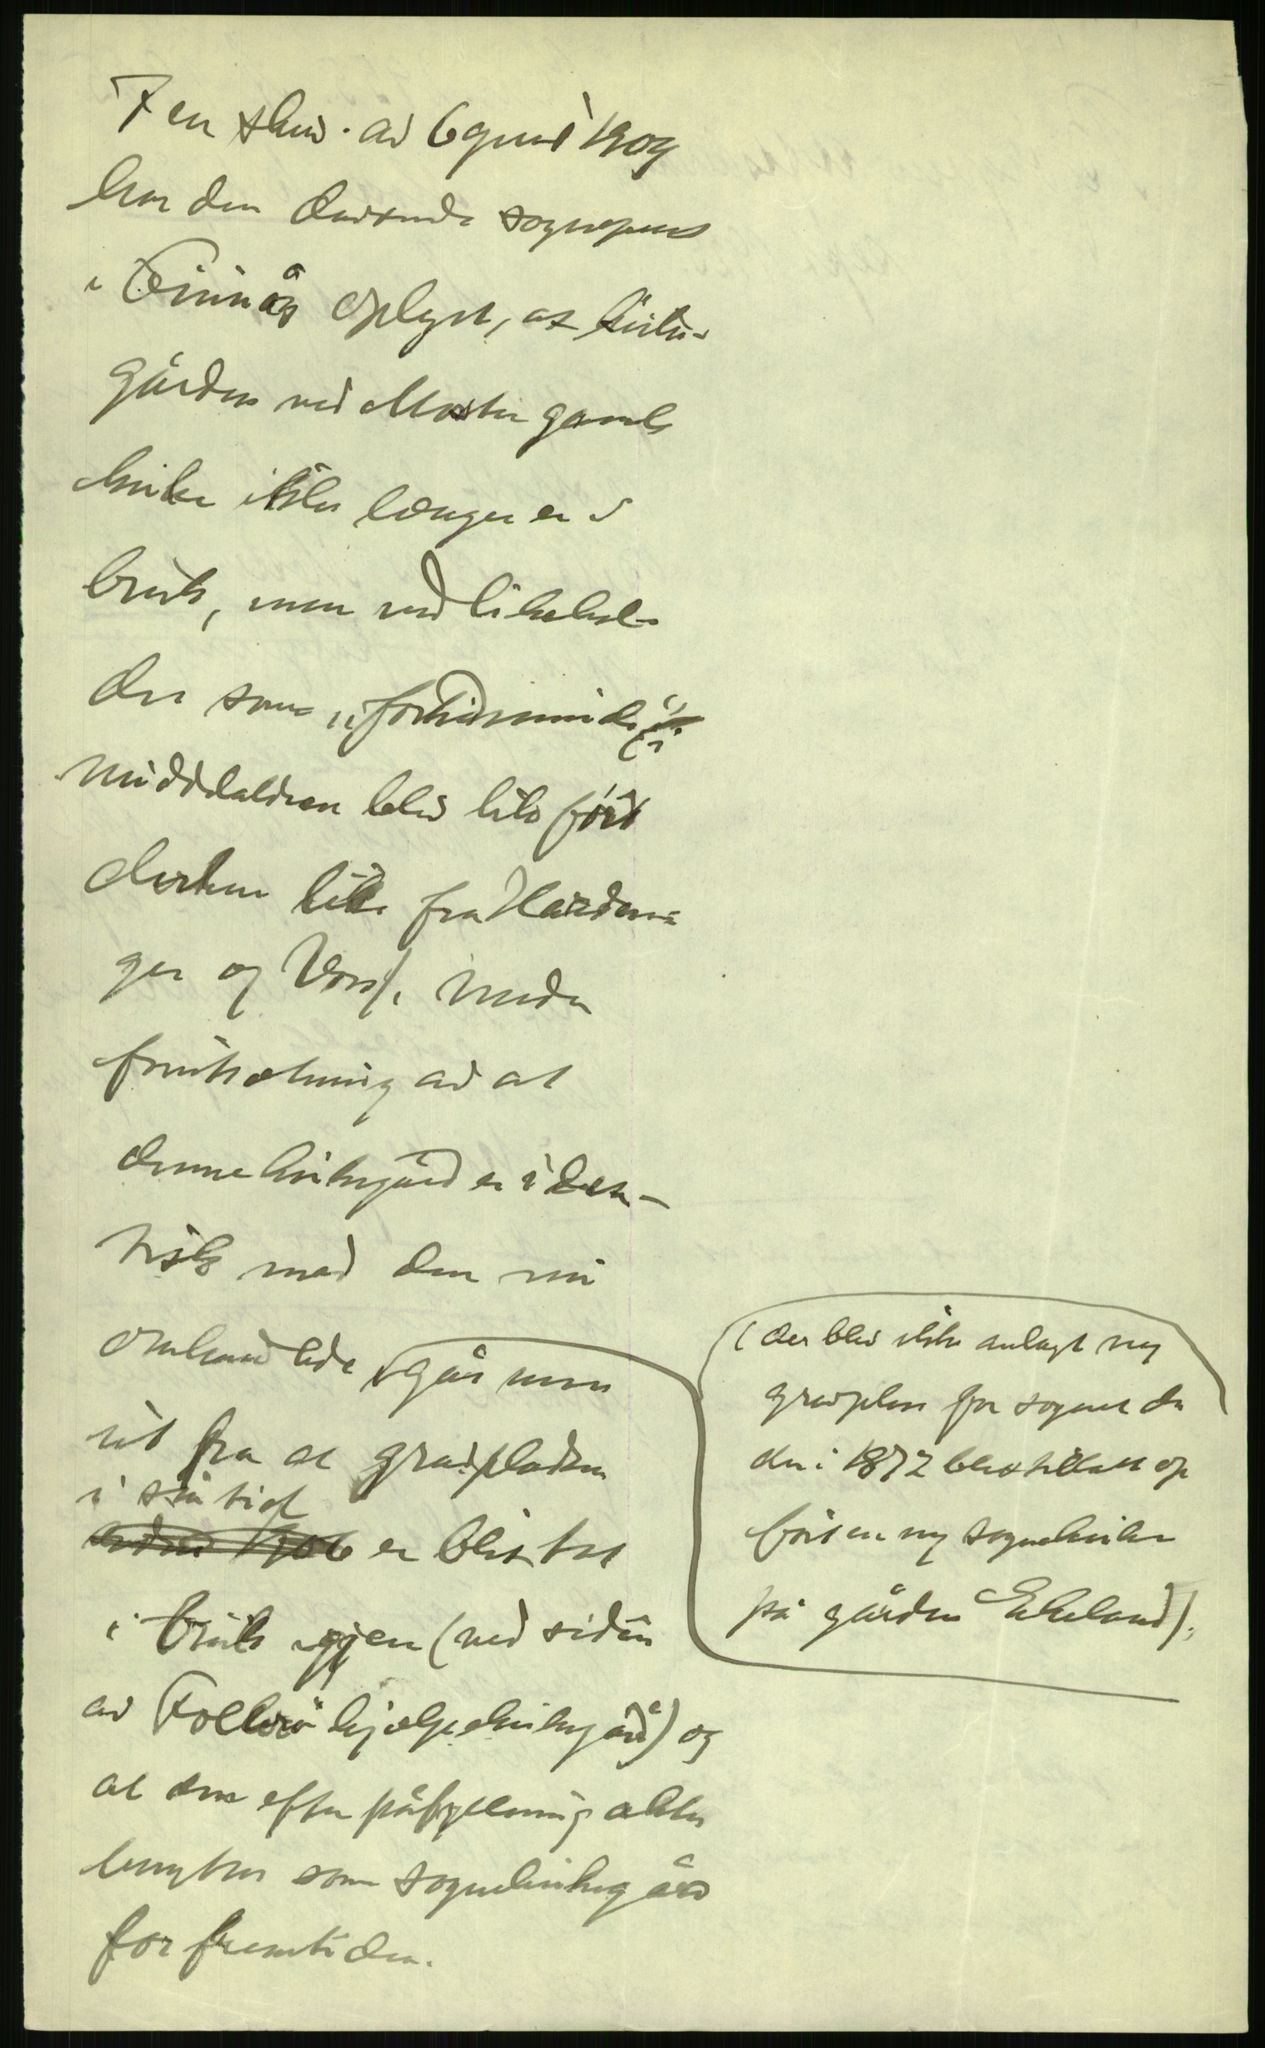 I en skriv. av 6 juni 1909
har den daværende sogneprest
i Finnås oplyst, at kirke-
gården ved Moster gamle
kirke ikke længer er i
bruk, men vedlikehol-
des som "fortidsminde";
i middelalderen blev lik ført
dertil like fra Hardan-
ger og Voss. Under
forutsætning av at
denne kirkegård er iden-
tisk med den nu
omhandlede går man
ut fra at gravpladsen
i sin tid
er blit tat
i bruk igjen (ved siden
av Føllesø hjælpekirkegård) og
at den efter påfyldning atter
benyttes som sognekirkegård
for fremtiden.
(der blev ikke anlagt ny
gravplass for sognet da
der i 1872 blev tillatt op-
ført en ny sognekirke
på gården Ekeland).